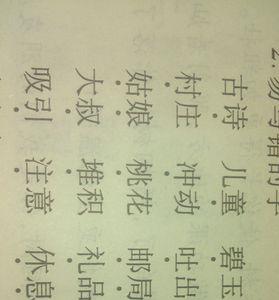 2. 易写错的字
古诗 儿童 碧玉
村庄 冲动 吐出
姑娘 桃花 邮局
大叔 堆积 礼品
吸引 注意 休息